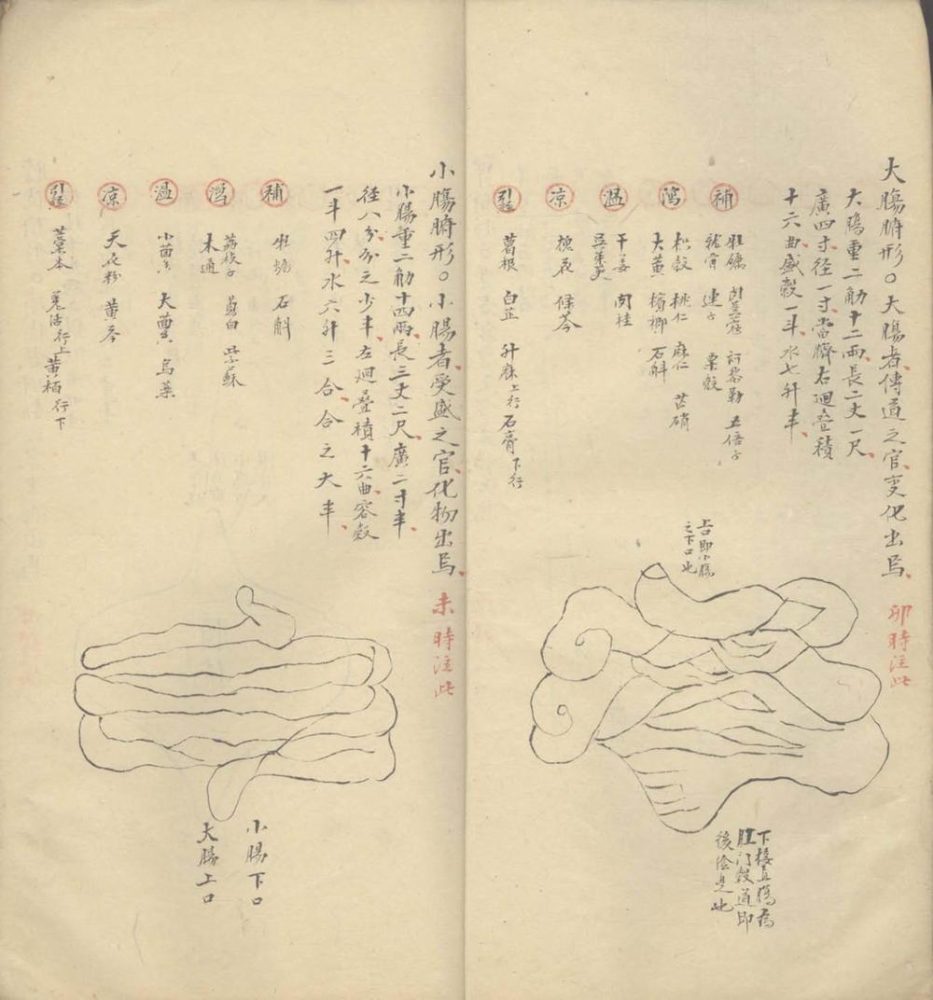 大腸腑形○大腸者傳道之官変化出焉 卯時注此
大腸重二觔十二兩長二丈一尺
廣四寸径一寸當臍右迴叠積
十六曲盛穀一斗水七升半
補 牡蠣 肉荳蔻 訶黎勒 五倍子
龍骨 連子 粟殼
瀉 枳殼 桃仁 麻仁 芒硝
大黃 檳榔 石斛
溫 干姜 肉桂
吳茱萸
凉 槐花 條芩
引經 葛根 白芷 升麻上行 石膏下行
上口即小腸
之下口也
下接直腸為
肛门穀道即
後陰是也
小腸腑形○小腸者受盛之官化物出焉 未時注此
小腸重二觔十四兩長三丈二尺廣二寸半
径八分分之少半左迴叠積十六曲容穀
一斗四升水六升三合合之大半
補 牡蠣 石斛
瀉 葱白 紫蘇
木通
溫 小茴香 大茴 烏藥
凉 天花粉 黃芩
引經 藁本 羌活行上 黃栢行下
小腸下口
大腸上口